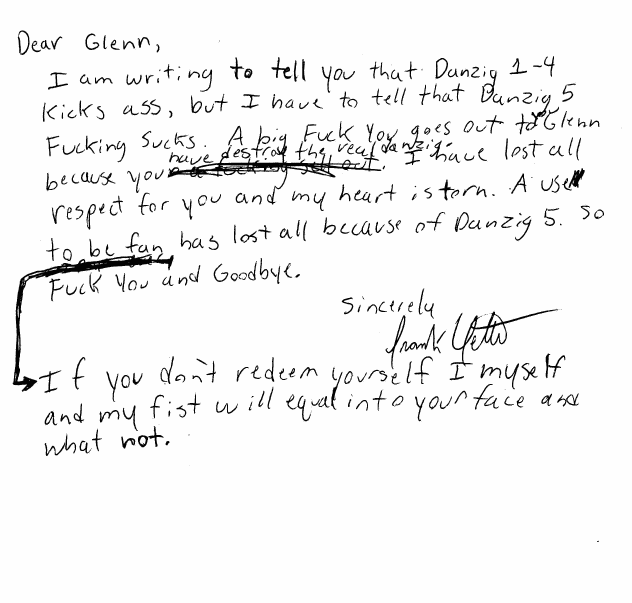 Dear Glenn,
I am writing to tell you that Danzig 1-4
Kicks ass, but I have to tell that Danzig 5
Fucking Sucks. A big Fuck You goes out to Glenn
have destroy the real danzig.
because you I have lost all
respect for you and my heart is torn. A use
to be fan has lost all because of Danzig 5. so
Fuck You and Goodbye.
Sincerely
Frank
If you don't redeem yourself I myself
and my fist will equal into your face and
what not.